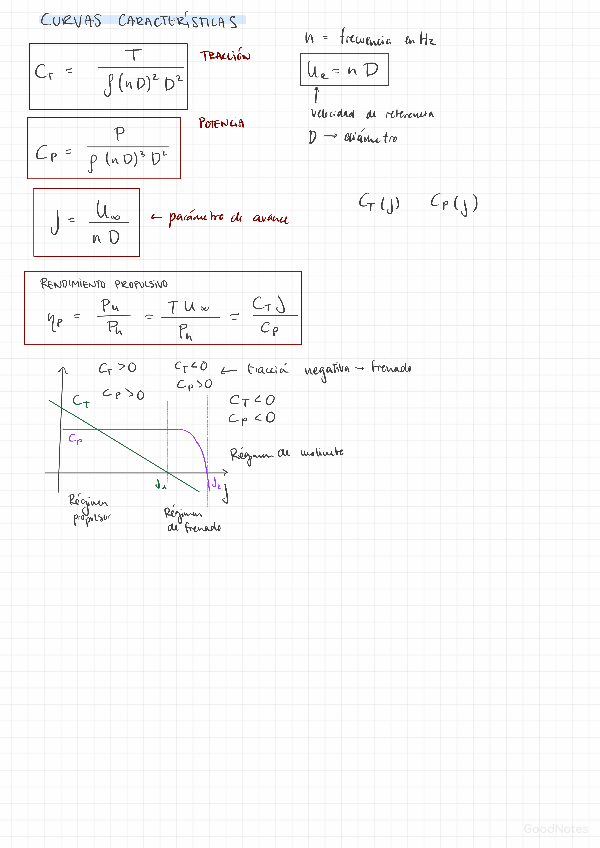 CURVAS CARACTERÍSTICAS
C_T = T / ρ(nD)² D²
TRACCIÓN
n = frecuencia en Hz
U_e = n D
velocidad de referencia
D → diámetro
C_P = P / ρ(nD)³ D²
POTENCIA
J = U_∞ / n D
← parámetro de avance
C_T(J) C_P(J)
RENDIMIENTO PROPULSIVO
η_P = P_u / P_h = T U_∞ / P_h = C_T J / C_P
C_T > 0
C_P > 0
C_T < 0 ← tracción negativa → frenado
C_P > 0
C_T < 0
C_P < 0
C_T
C_P
Régimen de molinete
J_1
J_2
J
Régimen
propulsor
Régimen
de frenado
GoodNotes